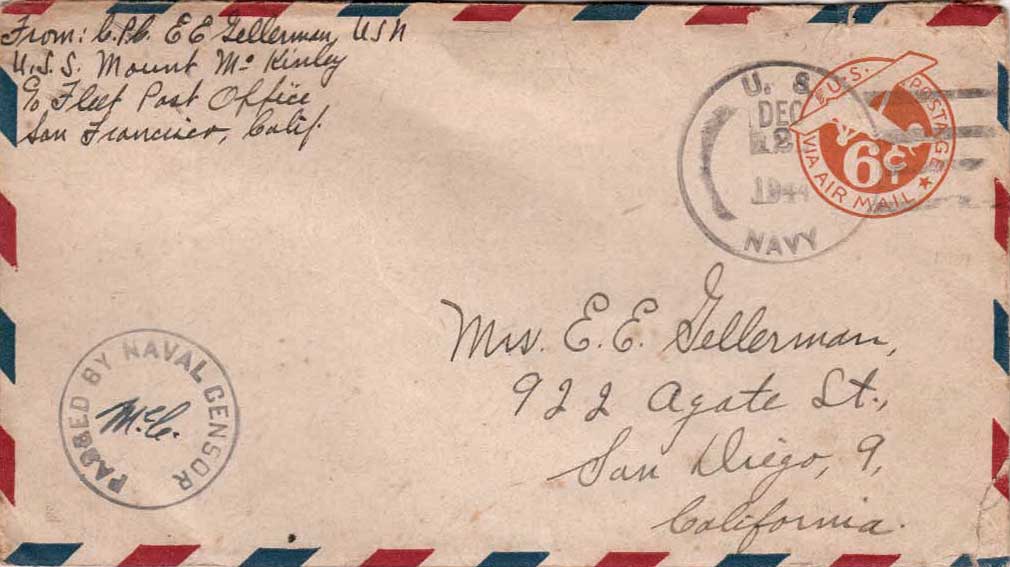 From: C.Ph. E E Gellerman, USN
U.S.S. Mount McKinley
c/o Fleet Post Office
San Francisco, Calif.
U. S.
DEC
2
1944
NAVY
U.S. POSTAGE
VIA AIR MAIL
6¢
Mrs. E.E. Gellerman,
922 Agate St.,
San Diego, 9,
California.
PASSED BY NAVAL CENSOR
McC.